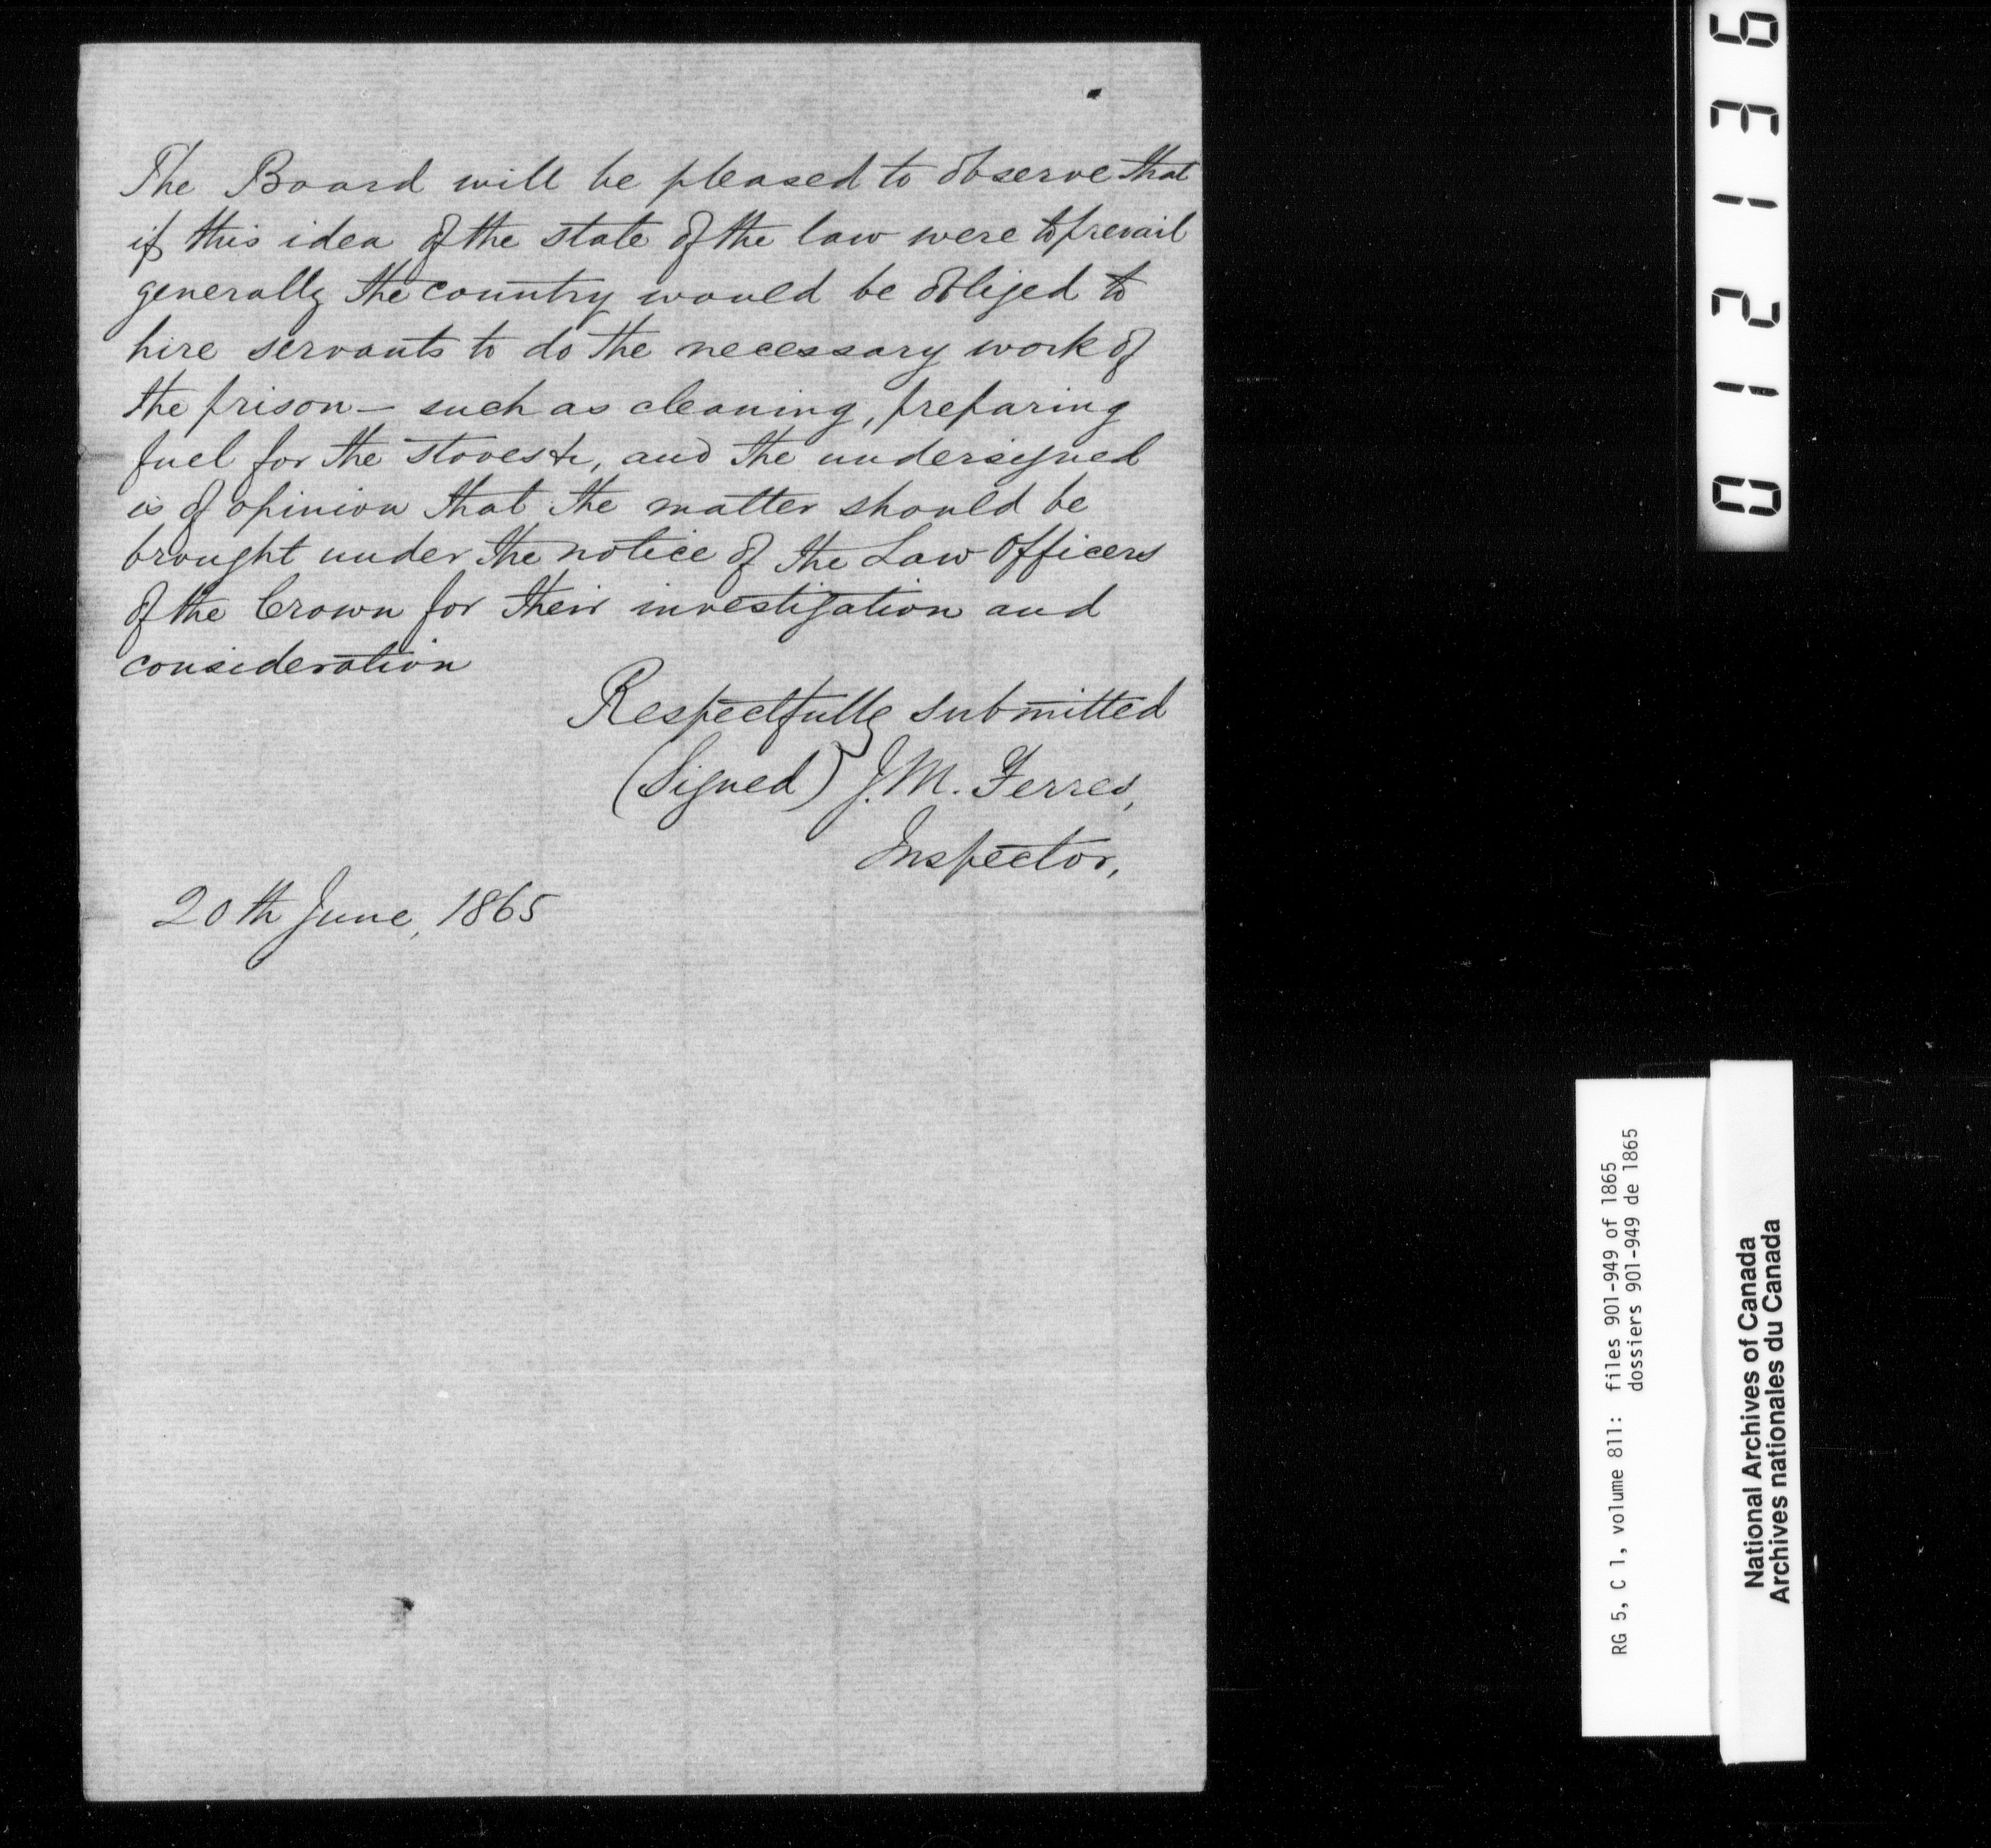 The Board will be pleased to observe that
if this idea of the state of the law were to prevail
generally the country would be obliged to
hire servants to do the necessary work of
the prison — such as cleaning, preparing
fuel for the stoves &c, and the undersigned
is of opinion that the matter should be
brought under the notice of the Law Officers
of the Crown for their investigation and
consideration
Respectfully submitted
(Signed) J. M. Ferres,
Inspector,
20th June, 1865
012136
RG 5, C 1, volume 811: files 901-949 of 1865
dossiers 901-949 de 1865
National Archives of Canada
Archives nationales du Canada